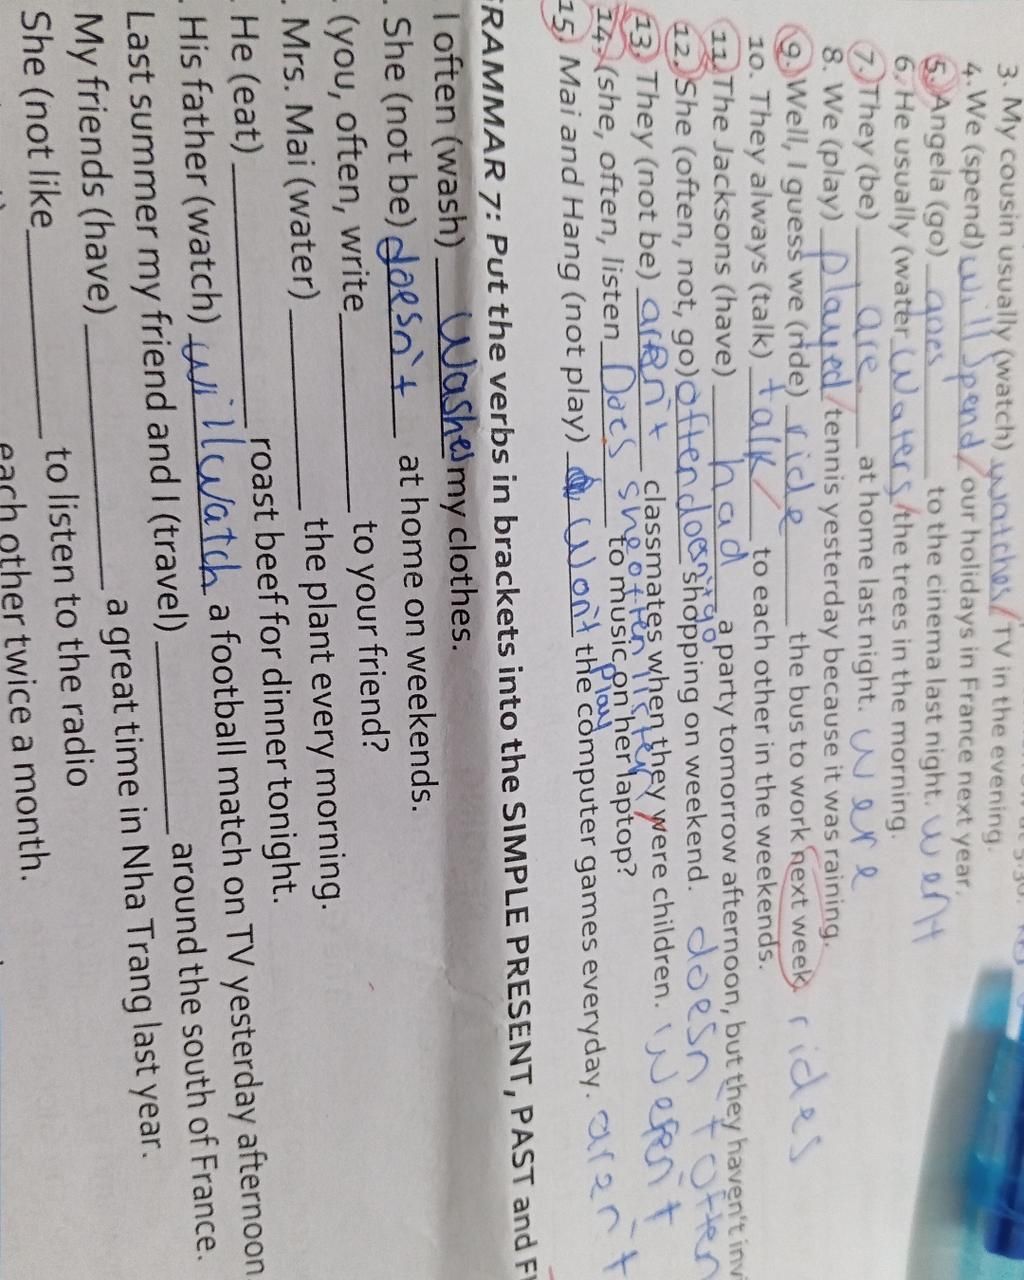 3. My cousin usually (watch) watches/ TV in the evening.
4. We (spend) will spend/ our holidays in France next year.
5. Angela (go) goes to the cinema last night. went
6. He usually (water waters/ the trees in the morning.
7. They (be) are at home last night. were
8. We (play) played/ tennis yesterday because it was raining.
9. Well, I guess we (ride) ride the bus to work next week. rides
10. They always (talk) talk/ to each other in the weekends.
11. The Jacksons (have) had a party tomorrow afternoon, but they haven't inv
12. She (often, not, go) often doesn't go shopping on weekend. doesn't often
13. They (not be) aren't classmates when they were children. weren't
14. (she, often, listen Does she often listen to music on her laptop?
15. Mai and Hang (not play) won't play the computer games everyday. aren't
RAMMAR 7: Put the verbs in brackets into the SIMPLE PRESENT, PAST and F
. I often (wash) washes my clothes.
. She (not be) doesn't at home on weekends.
. (you, often, write to your friend?
. Mrs. Mai (water) the plant every morning.
. He (eat) roast beef for dinner tonight.
. His father (watch) will watch a football match on TV yesterday afternoon
Last summer my friend and I (travel) around the south of France.
My friends (have) a great time in Nha Trang last year.
She (not like to listen to the radio
each other twice a month.